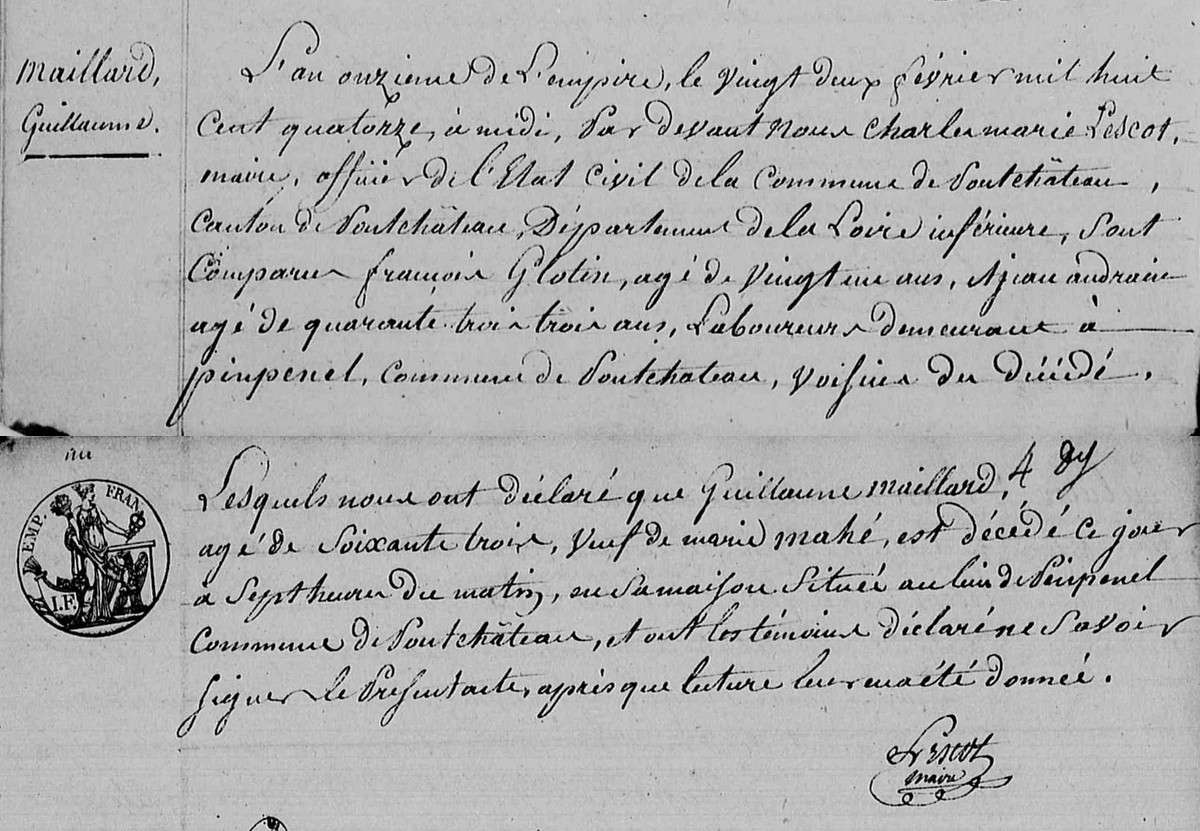 Maillard,
Guillaume.
L'an onzieme de L'empire, le vingt deux février mil huit
Cent quatorze, à midi, Par devant Nous Charles marie Lescot,
maire, officier de l'Etat Civil de la Commune de Pontchâteau,
Canton de Pontchâteau, Département de la Loire inférieure, sont
Comparus françois Glotin, agé de vingt ans, & jean audrain
agé de quarante trois trois ans, Laboureurs demeurant à
pinpenel, Commune de Pontchateau, voisins du décédé,
Lesquels nous ont déclaré que Guillaume Maillard,
agé de Soixante trois, veuf de marie mahé, est décédé ce jour
a Sept heures du matin, en sa maison située au lieu de Pinpenel
Commune de Pontchâteau, et ont les témoins déclaré ne Savoir
Signer le Présent acte, après que lecture leur en a été donnée.
EMP. FRAN.
I.F.
Lescot
maire